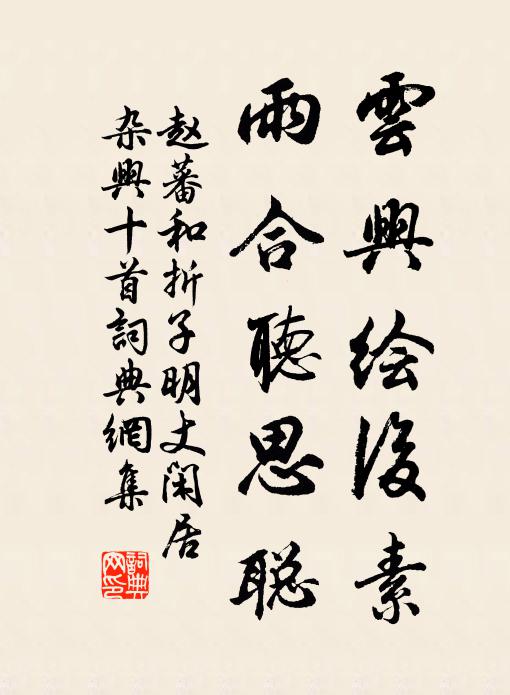 雲興绘後素
雨合聽思聪
赵蕃和折子明丈闲居
杂興十首詞典網集
詞典網印